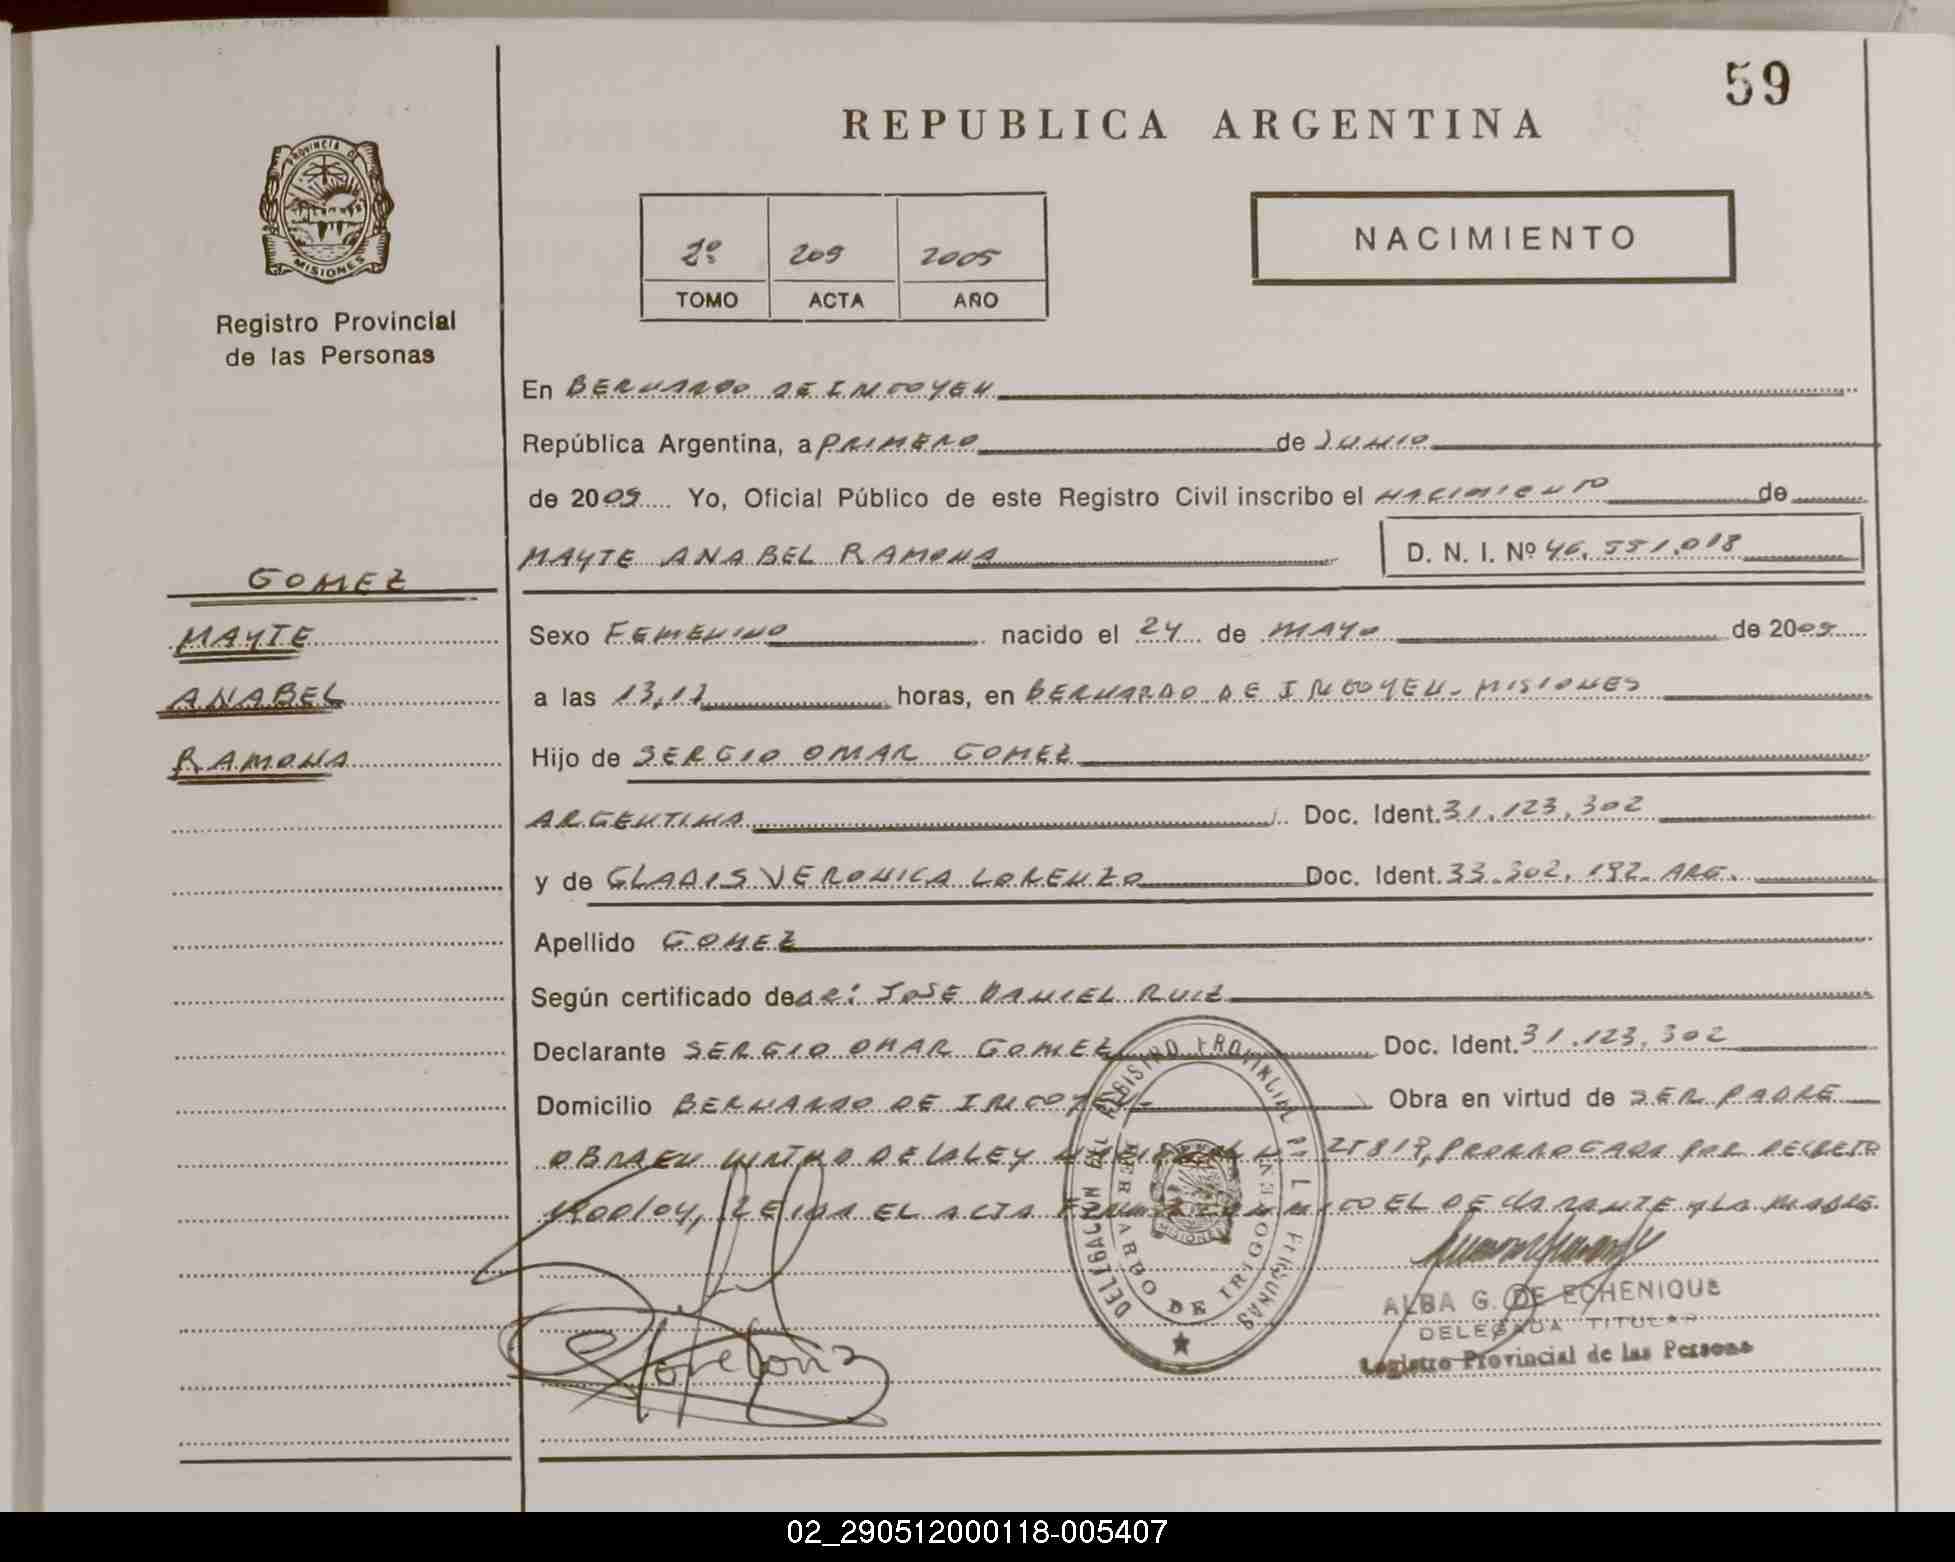 59
REPUBLICA ARGENTINA
PROVINCIA D MISIONES
Registro Provincial
de las Personas
2º 209 2005
TOMO ACTA AÑO
NACIMIENTO
En BERNARDO DE IRIGOYEN
República Argentina, a PRIMERO de JUNIO
de 2005 Yo, Oficial Público de este Registro Civil inscribo el NACIMIENTO de
MAYTE ANABEL RAMONA D. N. I. Nº 46.551.018
GOMEZ
MAYTE
ANABEL
RAMONA
Sexo FEMENINO nacido el 24 de MAYO de 2005
a las 13,12 horas, en BERNARDO DE IRIGOYEN - MISIONES
Hijo de SERGIO OMAR GOMEZ
ARGENTINA Doc. Ident. 31.123.302
y de GLADIS VERONICA LORENZO Doc. Ident. 33.302.192 ARG.
Apellido GOMEZ
Según certificado de DR: JOSE DANIEL RUIZ
Declarante SERGIO OMAR GOMEZ Doc. Ident. 31.123.302
Domicilio BERNARDO DE IRIGOYEN Obra en virtud de SER PADRE
OBRA EN VIRTUD DE LA LEY 25819, PRORROGADA POR DECRETO
1200/04, LEIDA EL ACTA EL DECLARANTE Y LA MADRE.
DELEGACION DEL REGISTRO PROVINCIAL DE LAS PERSONAS
BERNARDO DE IRIGOYEN
ALBA G. DE ECHENIQUE
DELEGADA TITULAR
Registro Provincial de las Personas
02_290512000118-005407